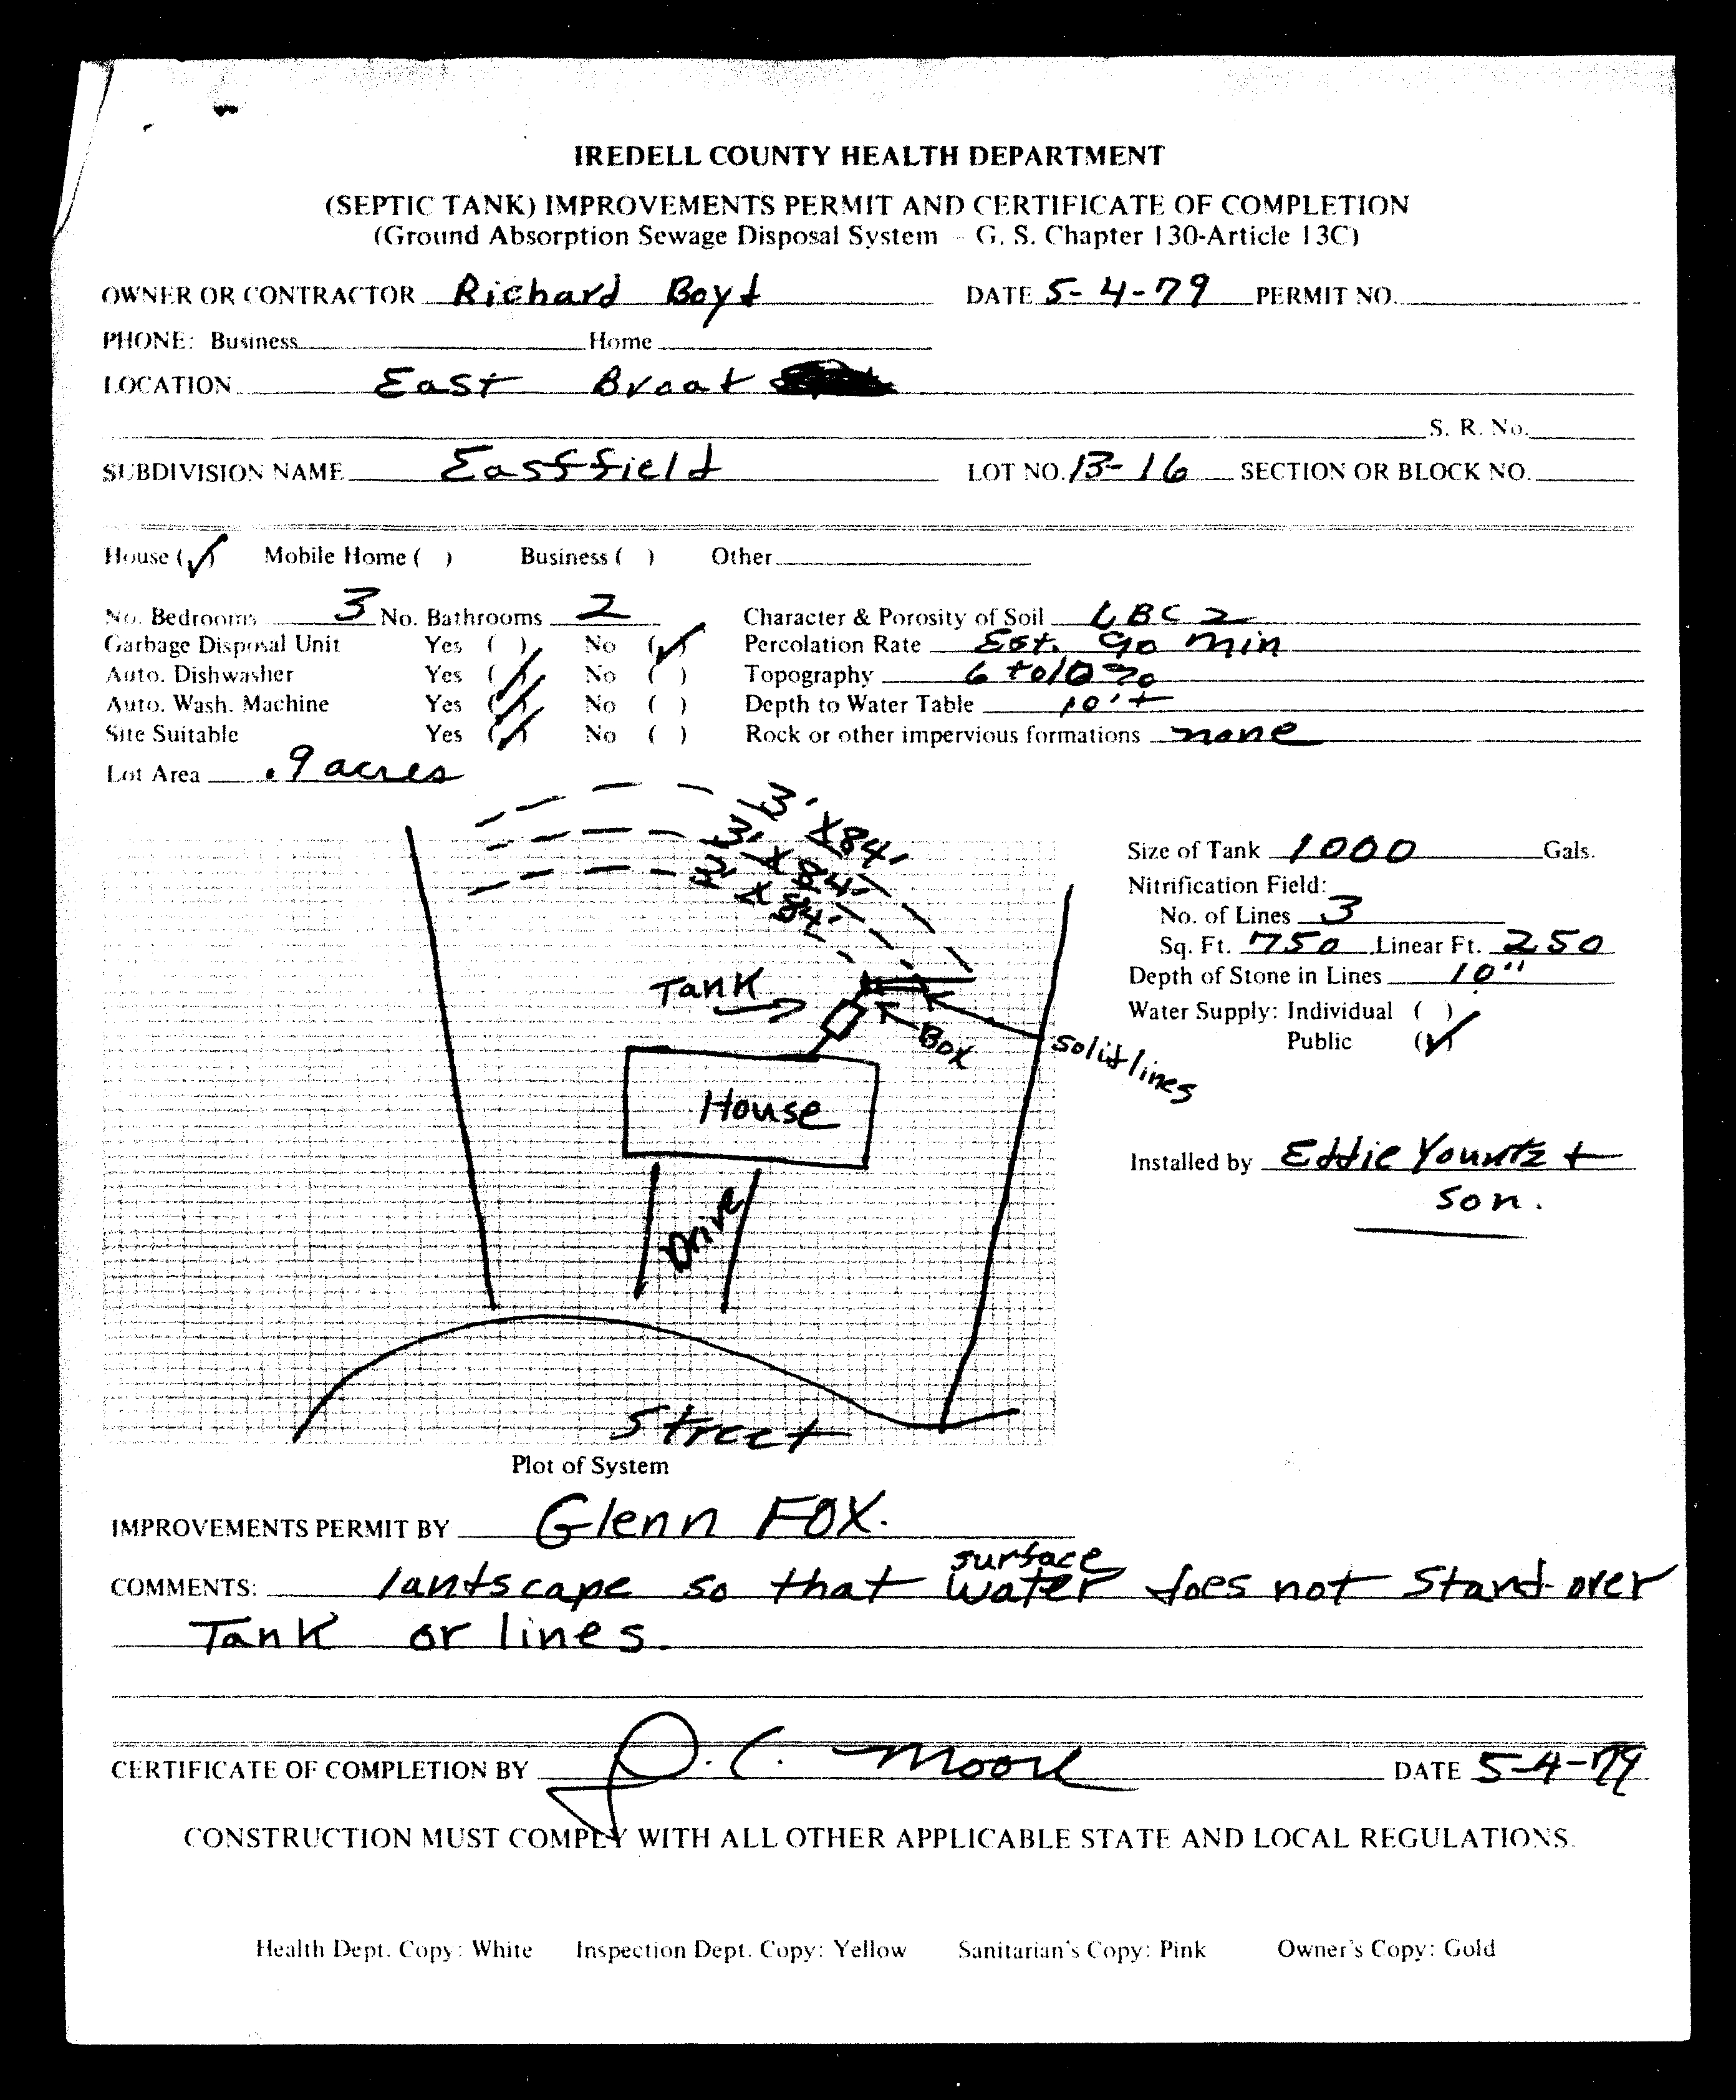 IREDELL COUNTY HEALTH DEPARTMENT
(SEPTIC TANK) IMPROVEMENTS PERMIT AND CERTIFICATE OF COMPLETION
(Ground Absorption Sewage Disposal System - G. S. Chapter 130-Article 13C)
OWNER OR CONTRACTOR Richard Boyd DATE 5-4-79 PERMIT NO.
PHONE: Business Home
LOCATION East Broad
S. R. No.
SUBDIVISION NAME Eastfield LOT NO. 13-16 SECTION OR BLOCK NO.
House (✓) Mobile Home ( ) Business ( ) Other
No. Bedrooms 3 No. Bathrooms 2 Character & Porosity of Soil LBC 2
Garbage Disposal Unit Yes ( ) No (✓) Percolation Rate Est. 90 min
Auto. Dishwasher Yes (✓) No ( ) Topography 6 to 10 %
Auto. Wash. Machine Yes (✓) No ( ) Depth to Water Table 10' +
Site Suitable Yes (✓) No ( ) Rock or other impervious formations none
Lot Area .9 acres
3' X 84'
3' X 84'
3' X 84'
Size of Tank 1000 Gals.
Nitrification Field:
No. of Lines 3
Sq. Ft. 750 Linear Ft. 250
Depth of Stone in Lines 10"
Water Supply: Individual ( )
Public (✓)
Tank
Box
solid lines
House
Drive
Installed by Eddie Yountz +
son.
Street
Plot of System
IMPROVEMENTS PERMIT BY Glenn Fox.
surface
COMMENTS: landscape so that water does not stand over
Tank or lines.
CERTIFICATE OF COMPLETION BY J. C. Moore DATE 5-4-79
CONSTRUCTION MUST COMPLY WITH ALL OTHER APPLICABLE STATE AND LOCAL REGULATIONS.
Health Dept. Copy: White Inspection Dept. Copy: Yellow Sanitarian's Copy: Pink Owner's Copy: Gold